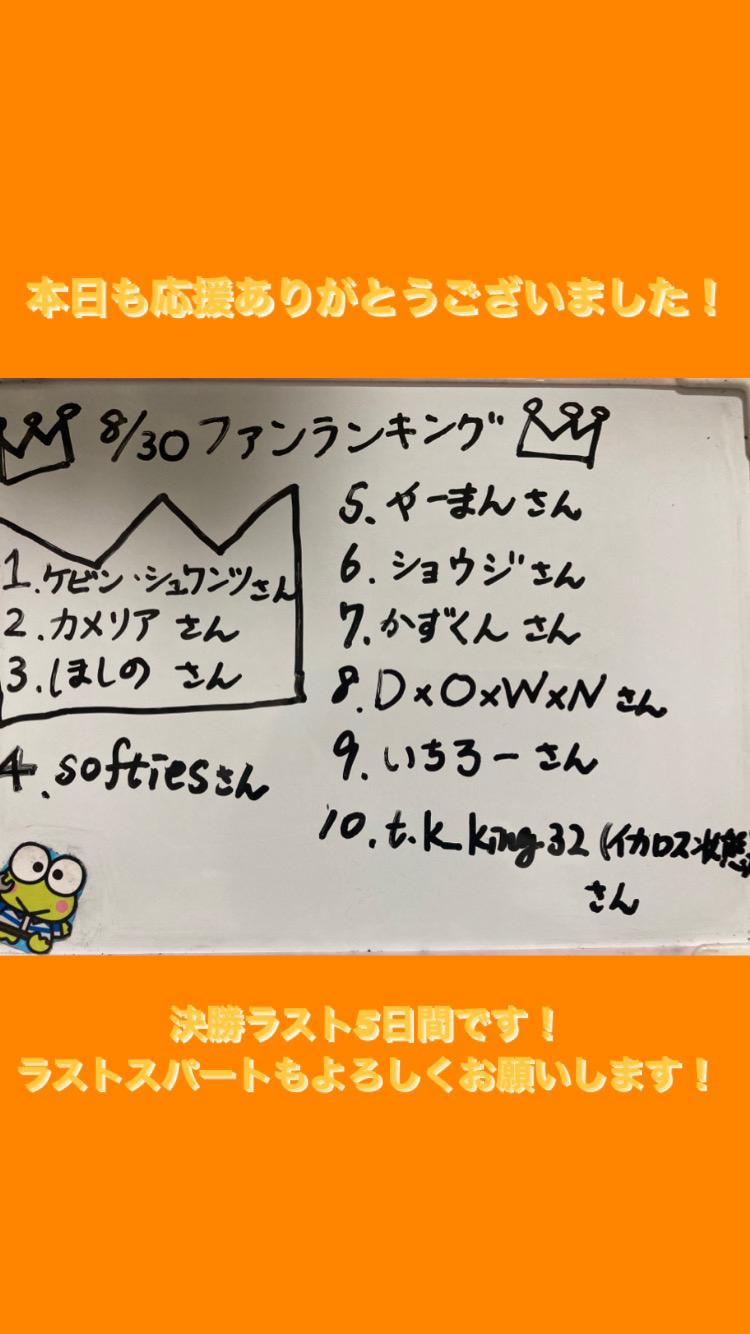 本日も応援ありがとうございました!
8/30ファンランキング
1.ケビン・シュワンツさん
2.カメリア さん
3.しましの さん
4.softiesさん
5.やーまん さん
6.ショウジ さん
7.かずくん さん
8.D×O×W×N さん
9.いちろー さん
10.t.k_king32(イカロス状態)
さん
決勝ラスト5日間です!
ラストスパートもよろしくお願いします!